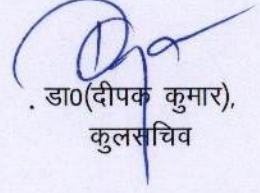 . डा0(दीपक कुमार),
कुलसचिव